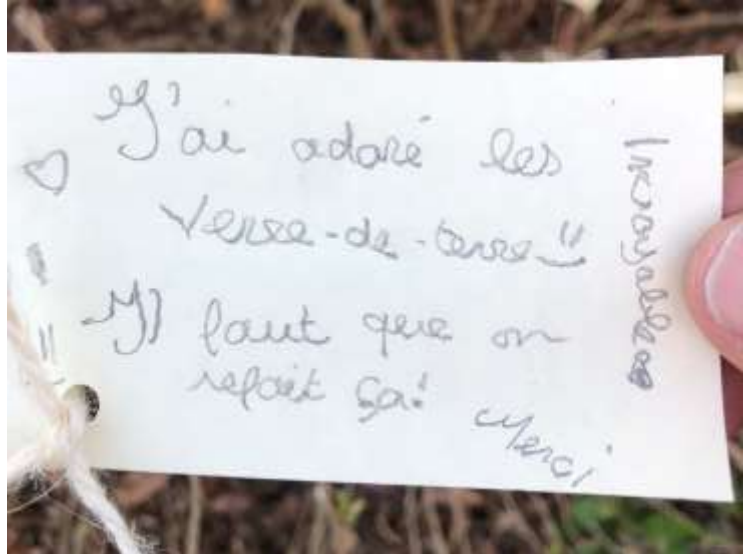 J'ai adoré les
Verre-de-terre !!
Il faut que on
refait ça!
Merci
Incroyable